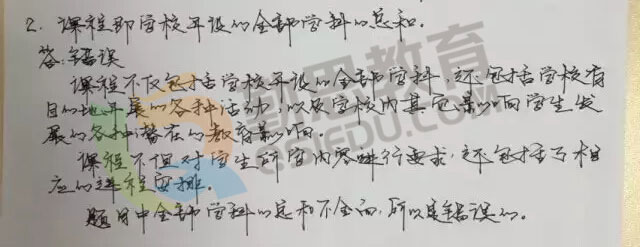 2. 课程即学校开设的全部学科的总和。
答:错误
课程不仅包括学校开设的全部学科,还包括学校有
目的地开展的各种活动,以及学校内其它影响学生发
展的各种潜在的教育影响。
课程不但对学生所学内容进行要求,还包括了相
应的进程安排。
题目中全部学科的总和不全面,所以是错误的。
教育
QSIEDU.COM